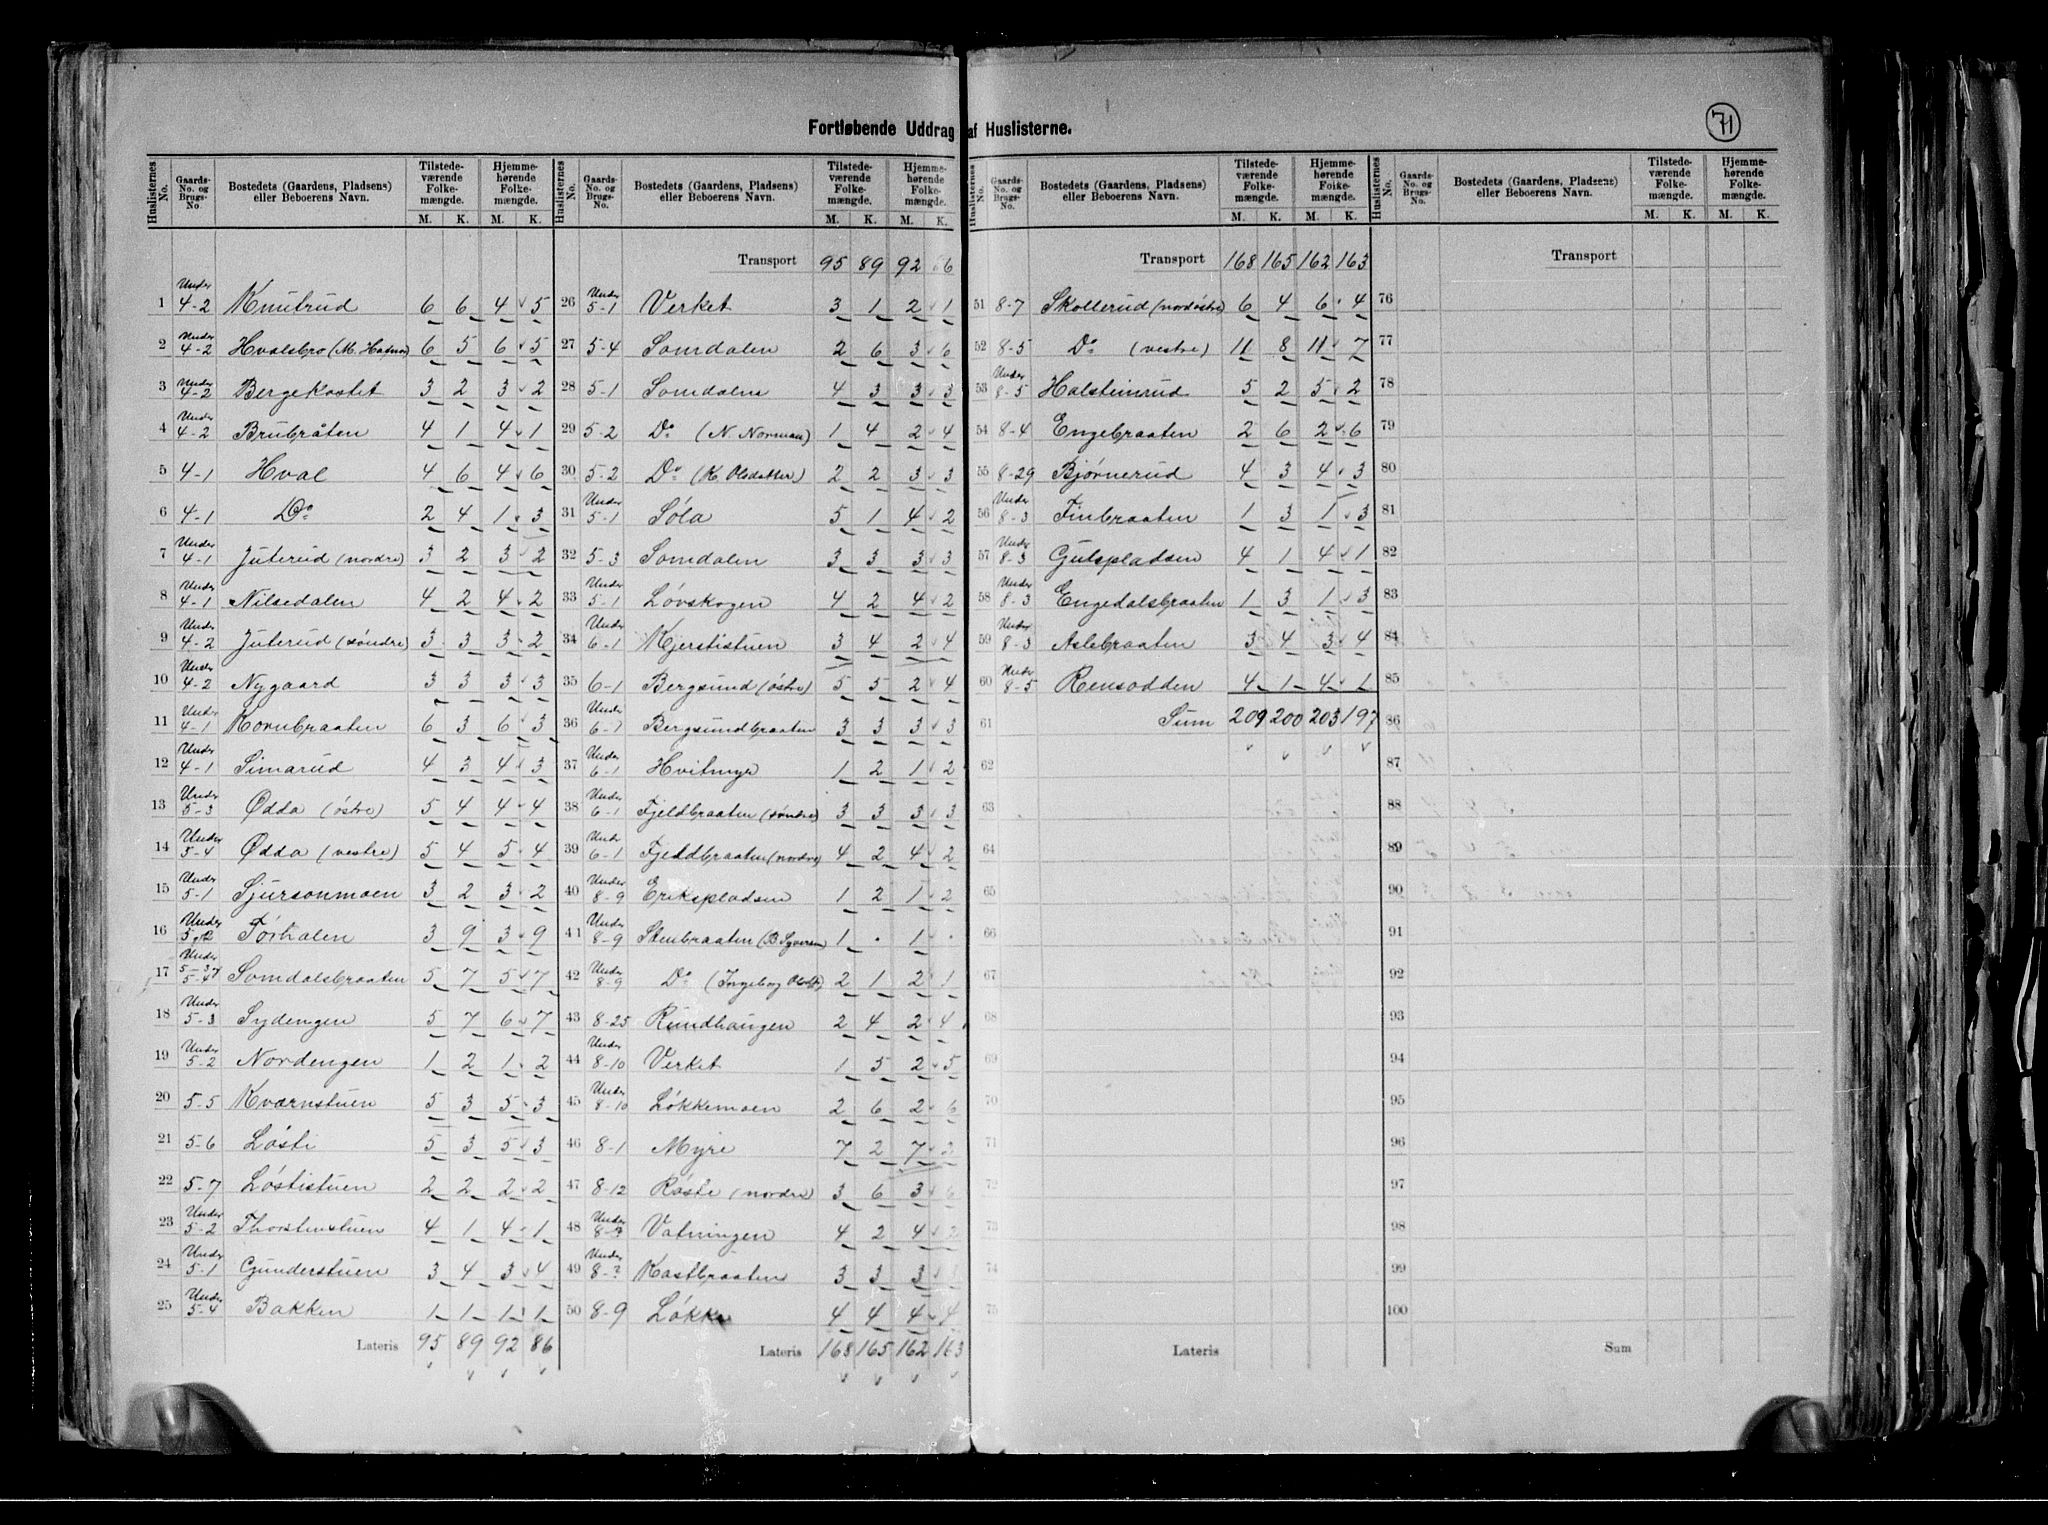 Fortløbende Uddrag af Huslisterne.
71
Huslisternes No. | Gaards-No. og Brugs-No. | Bostedets (Gaardens, Pladsens) eller Beboerens Navn. | Tilstedeværende Folkemængde. M. K. | Hjemmehørende Folkemængde. M. K.
1 Under 4-2 Knutrud 6 6 4 5
2 Under 4-2 Hvalsbro 6 5 6 5
3 Under 4-2 Bergekastet 3 2 3 2
4 Under 4-2 Brubråten 4 1 4 1
5 4-1 Hval 4 6 4 6
6 4-1 Do 2 4 1 3
7 Under 4-1 Juterud (nordre) 3 2 3 2
8 Under 4-1 Nilsedalen 4 2 4 2
9 Under 4-2 Juterud (søndre) 3 3 3 2
10 Under 4-2 Nygaard 3 3 3 3
11 Under 4-1 Kornbraaten 6 3 6 3
12 Under 4-1 Simarud 4 3 4 3
13 Under 5-3 Ødda (østre) 5 4 4 4
14 Under 5-4 Ødda (vestre) 5 4 5 4
15 Under 5-1 Sjursonmoen 3 2 3 2
16 UnderFørhalen 3 9 3 9
17 Under 5-4 Somdalsbraaten 5 7 5 7
18 Under 5-3 Sydengen 5 7 6 7
19 Under 5-2 Nordengen 1 2 1 2
20 5-5 Kværnstuen 5 3 5 3
21 5-6 Løsti 5 3 5 3
22 5-7 Løstistuen 2 2 2 2
23 Under 5-2 Thorstenstuen 4 1 4 1
24 Under 5-1 Gunderstuen 3 4 3 4
25 Under 5-4 Bakken 1 1 1 1
Lateris 95 89 92 86
Huslisternes No. | Gaards-No. og Brugs-No. | Bostedets (Gaardens, Pladsens) eller Beboerens Navn. | Tilstedeværende Folkemængde. M. K. | Hjemmehørende Folkemængde. M. K.
Transport 95 89 92 86
26 Under 5-1 Verket 3 1 2 1
27 5-4 Somdalen 2 6 3 6
28 5-1 Somdalen 4 3 3 3
29 5-2 Do (N. Norman) 1 4 2 4
30 5-2 Do (K. Olsdatter) 2 2 3 3
31 Under 5-1 Sóla 5 1 4 2
32 5-3 Somdalen 3 3 3 3
33 Under 5-1 Løvskogen 4 2 4 2
34 Under 6-1 Kjerstistuen 3 4 2 4
35 6-1 Bergsund (østre) 5 5 2 4
36 Under 6-1 Bergsundbraaten 3 3 3 3
37 Under 6-1 Hvitmyr 1 2 1 2
38 Under 6-1 Fjeldbraaten (søndre) 3 3 3 3
39 Und 6-1 Fjeldbraaten (nordre) 4 2 4 2
40 Under 8-9 Erikspladsen 1 2 1 2
41 Under 8-9 Stenbraaten (B Syversen) 1 · 1 ·
42 Under 8-9 Do (Ingeborg) 2 1 2 1
43 8-25 Rundhaugen 2 4 2 4
44 Under 8-10 Verket 1 5 2 5
45 Under 8-10 Løkkemoen 2 6 2 6
46 8-1 Myre 7 2 7 2
47 8-12 Røste (nordre) 3 6 3 6
48 Under Vatningen 4 2 4 2
49 Under Kastbraaten 3 3 3 3
50 8-9 Løkke 4 4 4 4
Lateris 168 165 162 163
Huslisternes No. | Gaards-No. og Brugs-No. | Bostedets (Gaardens, Pladsens) eller Beboerens Navn. | Tilstedeværende Folkemængde. M. K. | Hjemmehørende Folkemængde. M. K.
Transport 168 165 162 163
51 8-7 Skollerud (nordøstre) 6 4 6 4
52 8-5 Do (vestre) 11 8 11 7
53 Under 8-5 Halsteinrud 5 2 5 2
54 8-4 Engebraaten 2 6 2 6
55 8-29 Bjørnerud 4 3 4 3
56 Under 8-3 Finbraaten 1 3 1 3
57 Under 8-3 Gulspladsen 4 1 4 1
58 Under 8-3 Engedalsbraaten 1 3 1 3
59 Under 8-3 Aslebraaten 3 4 3 4
60 Under 8-5 Rensodden 4 1 4 1
61 Sum 209 200 203 197
62
63
64
65
66
67
68
69
70
71
72
73
74
75
Lateris
Huslisternes No. | Gaards-No. og Brugs-No. | Bostedets (Gaardens, Pladsens) eller Beboerens Navn. | Tilstedeværende Folkemængde. M. K. | Hjemmehørende Folkemængde. M. K.
Transport
76
77
78
79
80
81
82
83
84
85
86
87
88
89
90
91
92
93
94
95
96
97
98
99
100
Sum